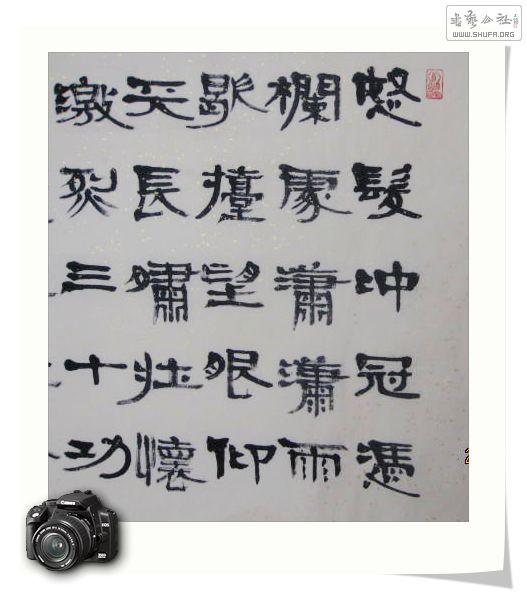 怒髮冲冠憑
欄處瀟瀟雨
歇擡望眼仰
天長嘯壯懷
激烈三十功
书艺公社
WWW.SHUFA.ORG
Canon
EOS